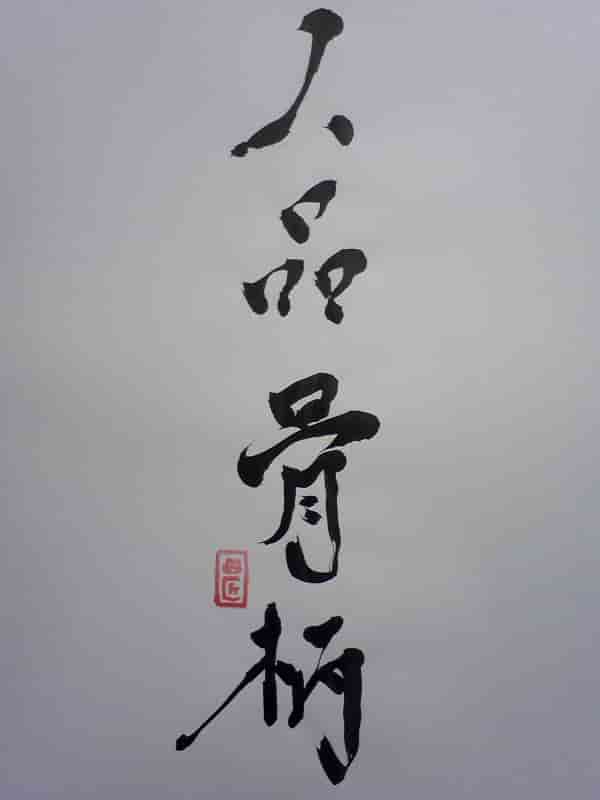 人品骨柄